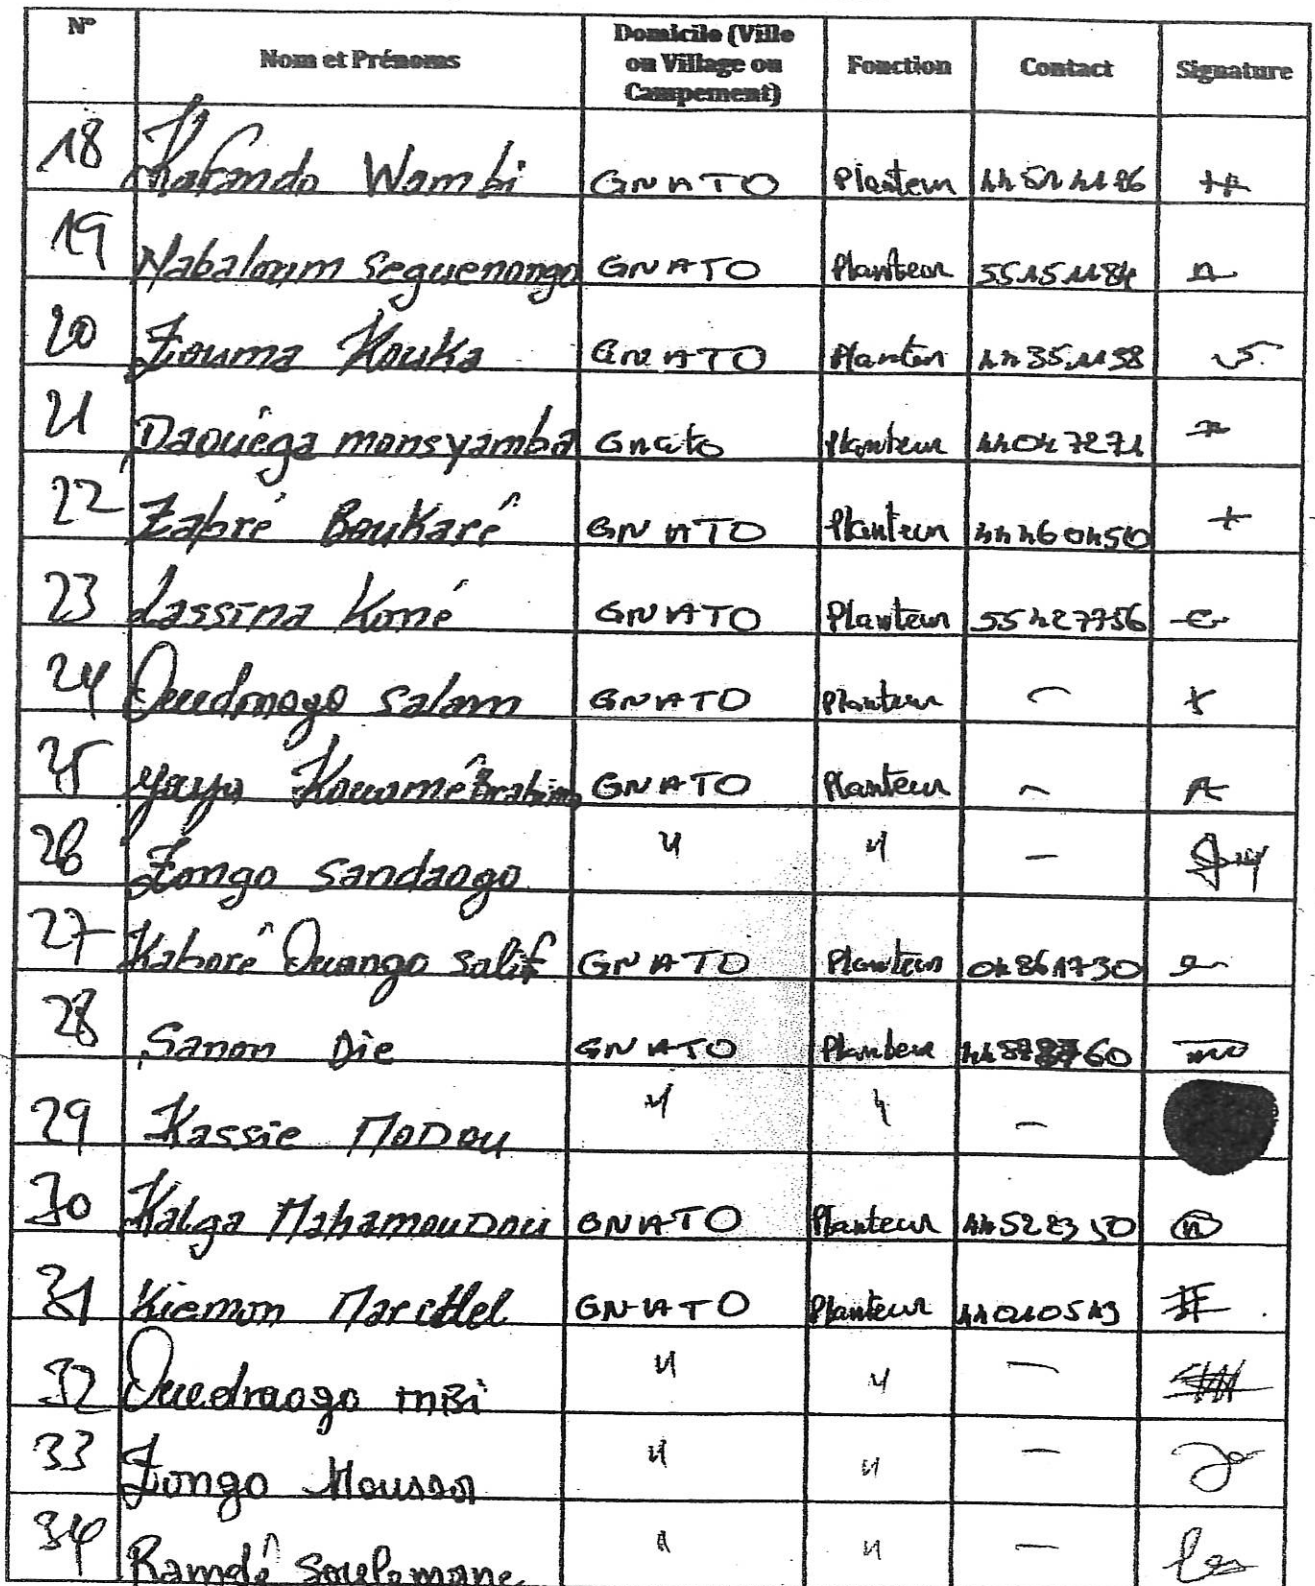 N° Nom et Prénoms Domicile (Ville ou Village ou Campement) Fonction Contact Signature
18 Kafando Wambi GNATO Planteur
19 Nabaloum Seguenongo GNATO Planteur 55151184
20 Zouma Kouka GNATO Planteur 44351158
21 Daouéga mansyamba Gnato Planteur 44047271
22 Zabré Boukaré GNATO Planteur 44460450
23 Lassina Koné GNATO Planteur 55427756
24 Ouedraogo Salam GNATO Planteur
25 yaya Kouamé Brahima GNATO Planteur -
26 Zongo Sandaogo " " -
27 Kaboré Ouango Salif GNATO Planteur 04861730
28 Sanon Die GNATO Planteur
29 Kassie MODOU " " -
30 Kalga MahamouDou GNATO Planteur
31 Kiemon GNATO Planteur
32 Ouedraogo mBi " " -
33 Zongo Moussa " " -
34 Ramdé Soulemane " " -